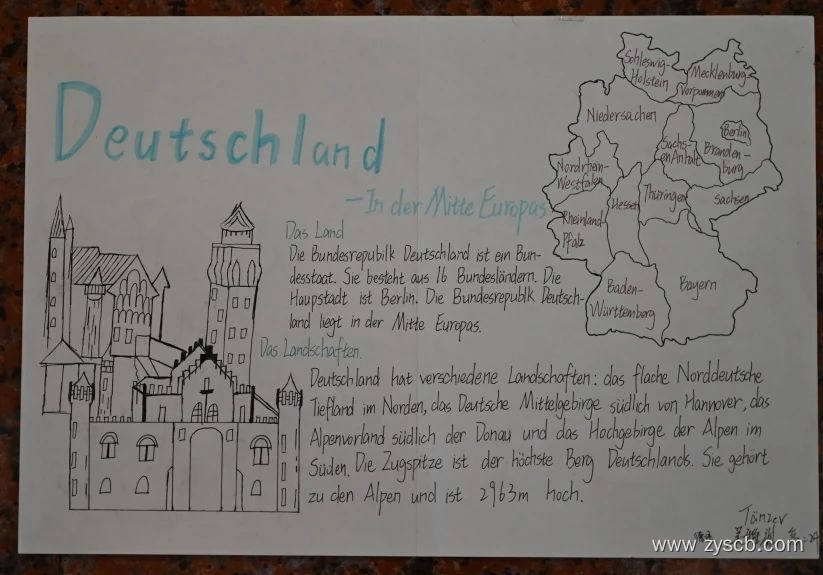 Deutschland
—In der Mitte Europas
Das Land
Die Bundesrepubilk Deutschland ist ein Bun-
desstaat. Sie besteht aus 16 Bundesländern. Die
Haupstadt ist Berlin. Die Bundesrepublk Deutsch-
land liegt in der Mitte Europas.
Das Landschaften.
Deutschland hat verschiedene Landschaften: das flache Norddeutsche
Tiefland im Norden, das Deutsche Mittelgebirge südlich von Hannover, das
Alpenvorland südlich der Donau und das Hochgebirge der Alpen im
Süden. Die Zugspitze ist der höchste Berg Deutschlands. Sie gehört
zu den Alpen und ist 2963m hoch.
Schleswig-
Holstein
Mecklenburg-
Vorpommern
Niedersachen
Berlin
Branden-
burg
Sachs-
en Anhalt
Nordrhein-
Westfalen
Hessen
Thüringen
Sachsen
Rheinland-
Pfalz
Baden-
Württemberg
Bayern
Tänzer
www.zyscb.com